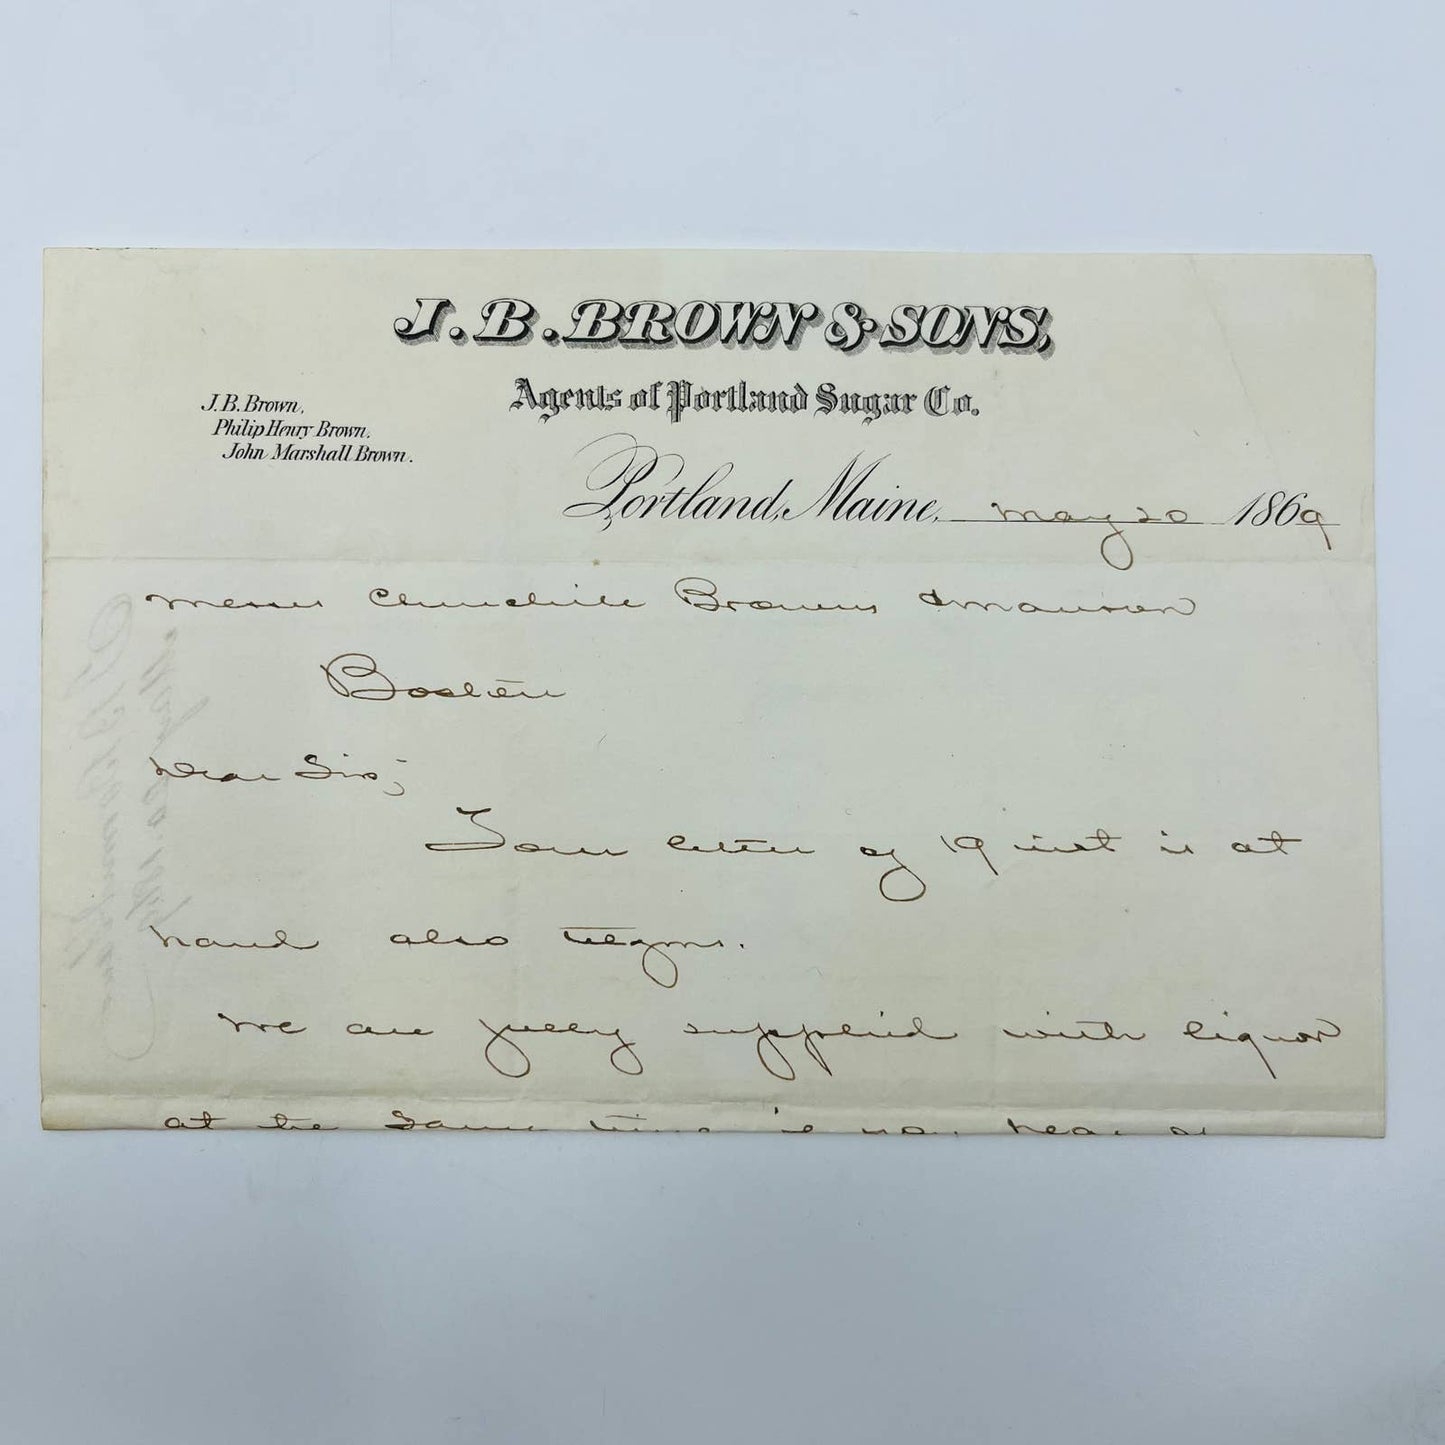 J. B. BROWN & SONS,
Agents of Portland Sugar Co.
J. B. Brown,
Philip Henry Brown,
John Marshall Brown.
Portland, Maine, May 20 1869
Messrs Churchill Browns & Manson
Boston
Dear Sirs;
Your letter of 19 inst is at
hand also telgms.
We are fully supplied with liquor
at the same time